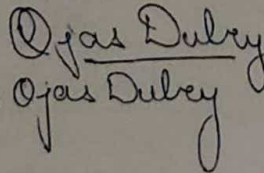 Ojas Dubey
Ojas Dubey